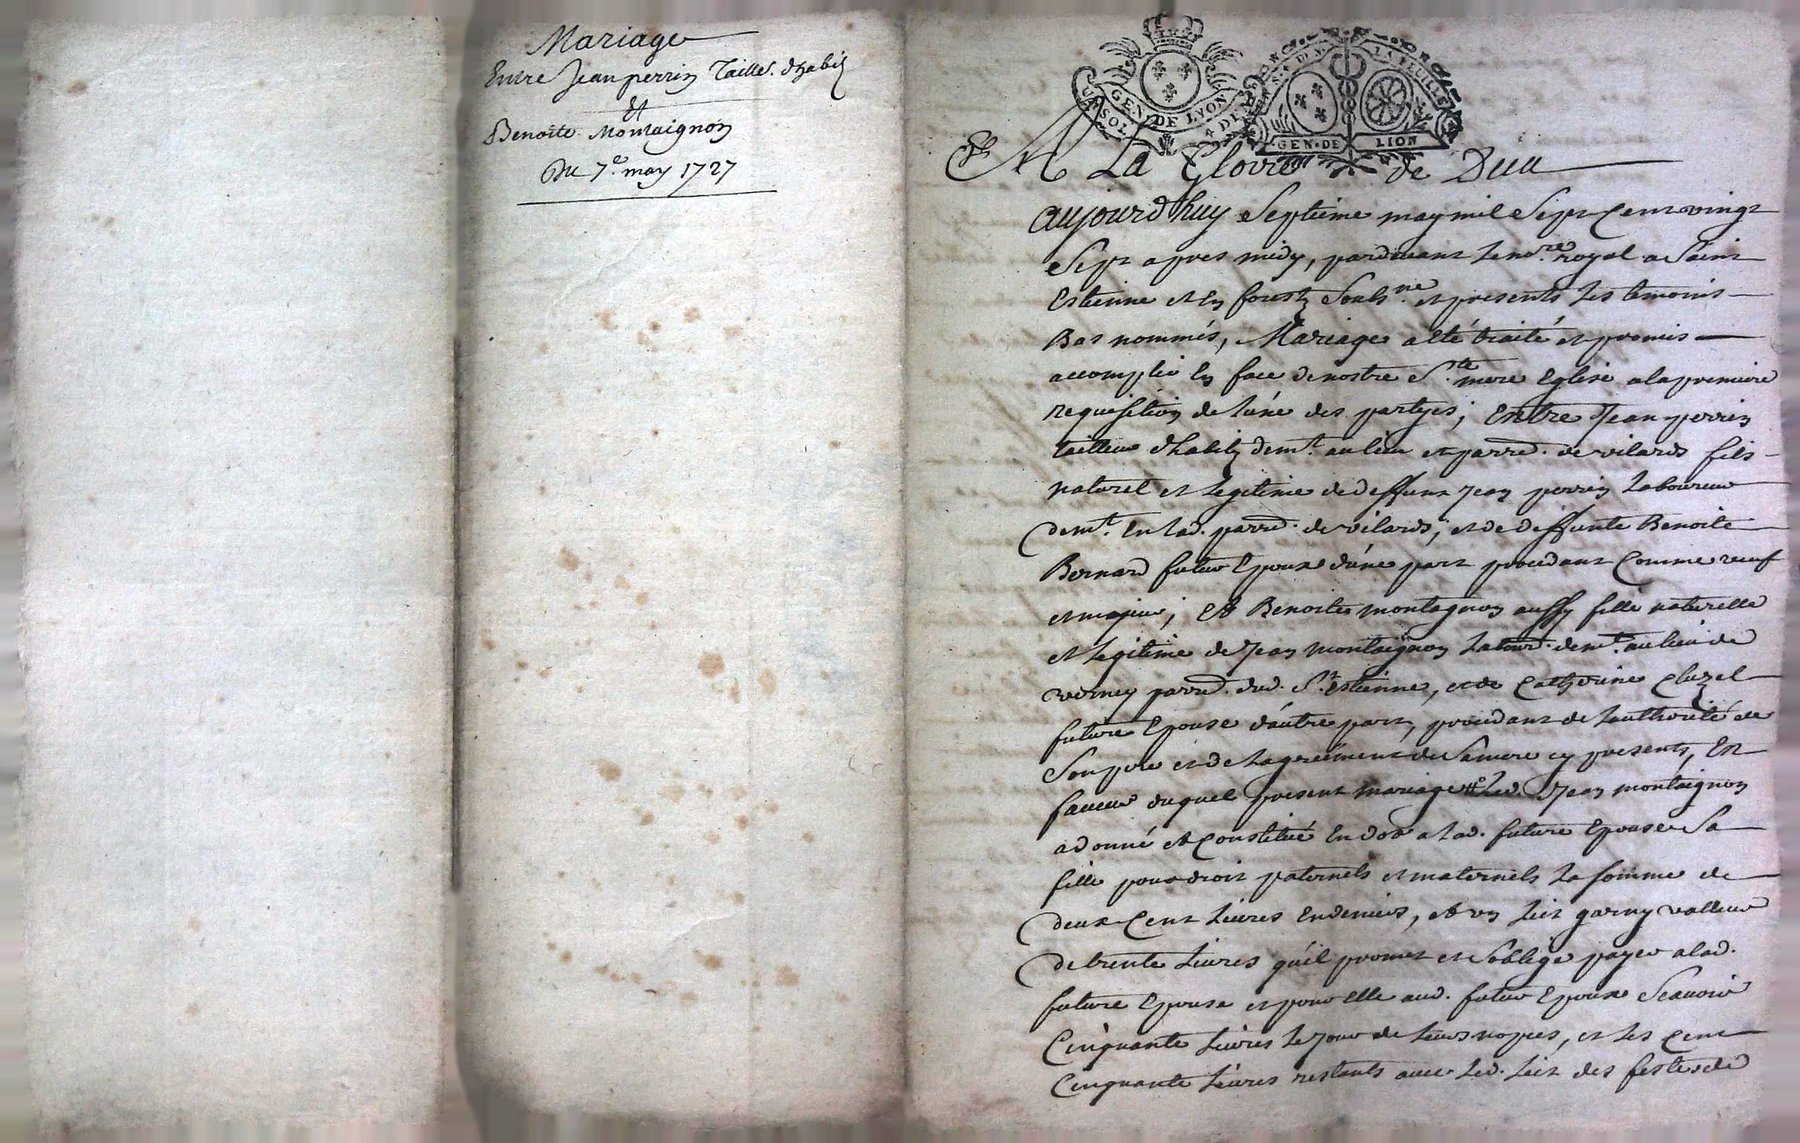 Mariage
Entre Jean perrin Taille.r dhabis
Et
Benoite Montaignon
Du 7.e may 1727
GEN. DE LYON
UN SOL
4 DEN
LA FEUILLE
GEN. DE LION
A La Gloire de Dieu
aujourdhuy Septieme may mil Sept Cent vingt
Sept apres midy, pardevant le no.re royal a Saint
Estienne et En forest Soubs.né et presents les temoins
Bas nommés, Mariage a été traité et promis
accomplir En face de nostre S.te mere Eglise a la premiere
requisition de l'une des partyes; Entre Jean perrin
tailleur d'habits dem.t au lieu et parr.e de vilards fils
naturel et legitime de deffunt Jean perrin laboureur
dem.t En lad. parr.e de vilards, et de deffunte Benoite
Bernard futur Epoux d'une part procedant Comme veuf
et majeur; Et Benoite montagnon aussy fille naturelle
et legitime de Jean montaignon labour.r dem.t au lieu de
verney parr.e dud. S.t estienne, et de Catherine Cluzel
future Epouse d'autre part, procedant de l'authorité de
Son pere et de l'agreément de Sa mere cy presents, En
faveur duquel present mariage led. Jean montaignon
a donné et Constitué En dot a lad. future Epouse Sa
fille pour droit paternels et maternels la somme de
deux Cent livres En deniers, et un lict garny valleur
de trente livres qu'il promet et S'oblige payer a lad.
future Epouse et pour elle aud. futur Epoux Scavoir
Cinquante livres le jour de leurs nopces, et les Cent
Cinquante livres restants avec led. lict des festes de